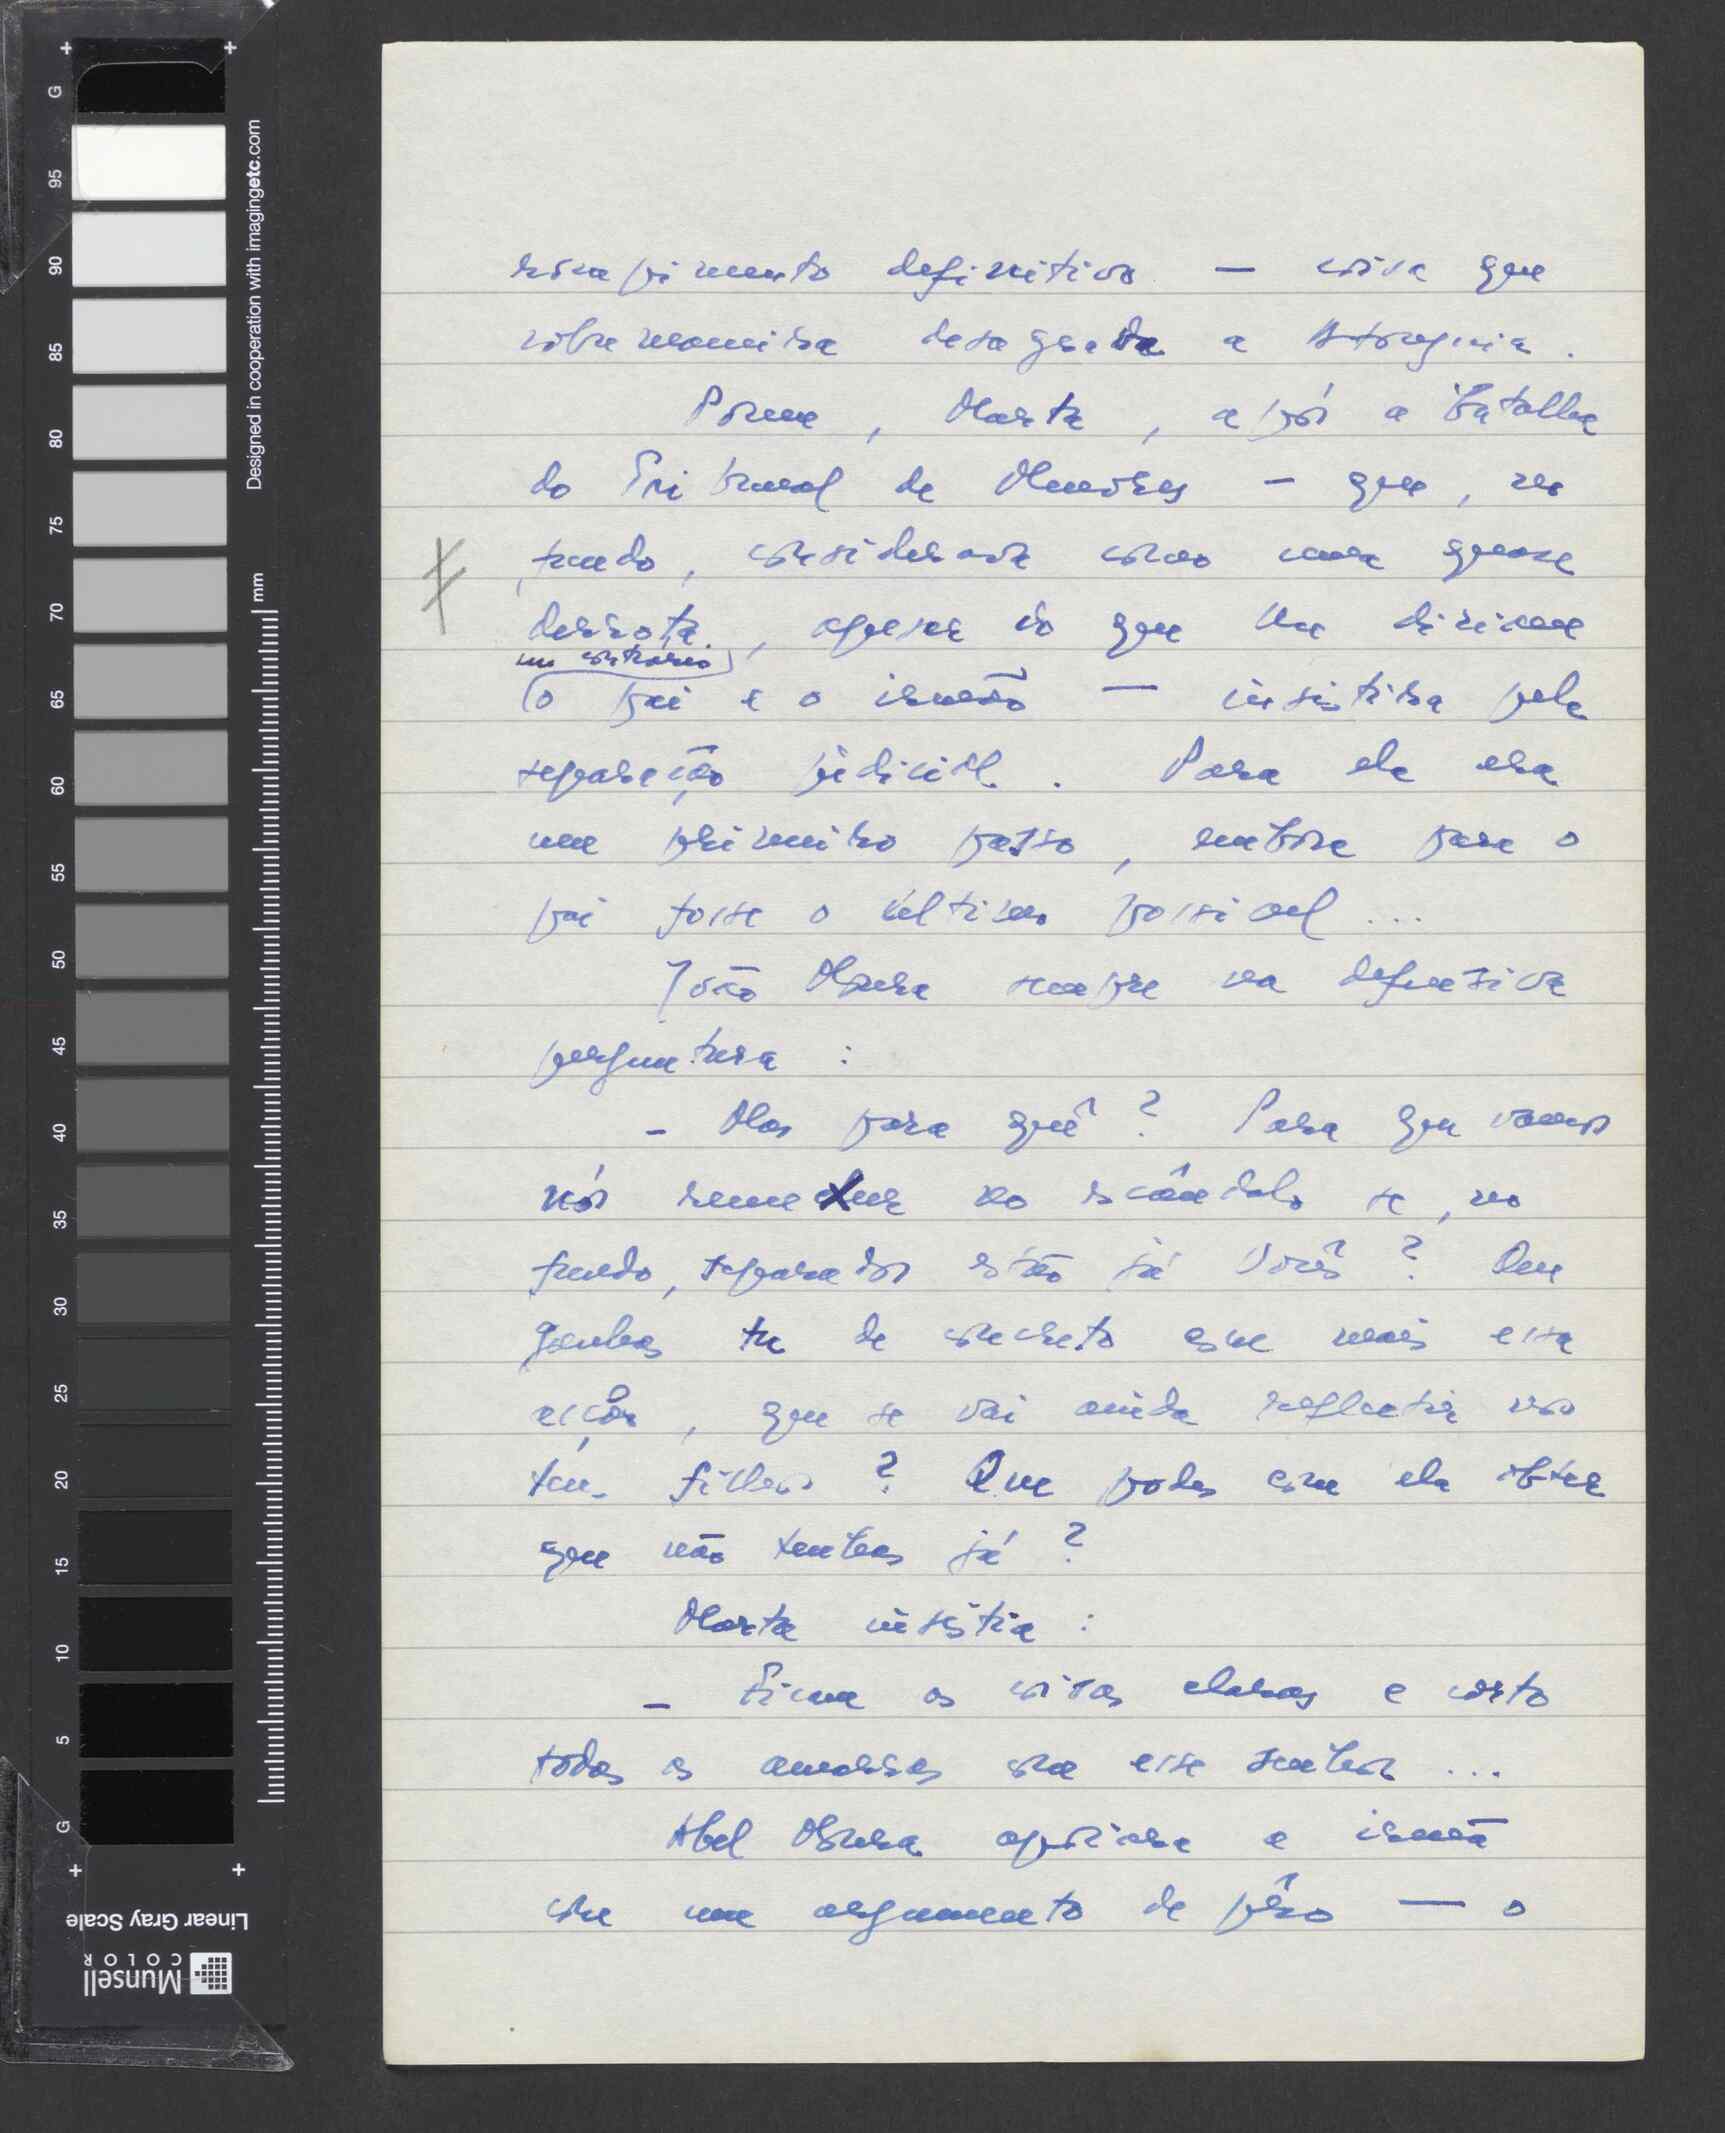 rompimento definitivo — coisa que
sobremaneira desagrada a Astregnia.
Porem, Marta, após a batalha
do Tribunal de Menores — que, no
fundo, considerava como uma quase
derrota, apesar do que lhe diziam
em contrário
o pai e o irmão — insistira pela
separação judicial. Para ela era
um primeiro passo, embora para o
pai fosse o último possível ...
João Moura sempre na defensiva
perguntara:
– Mas para quê? Para que vamos
nós remexer no escândalo se, no
fundo, separados estão já vocês? Que
ganhas tu de concreto com mais essa
acção, que se vai ainda reflectir nos
teus filhos? Que podes com ela obter
que não tenhas já?
Marta insistia:
– Ficam as coisas claras e corto
todas as amarras com esse senhor ...
Abel Moura apoiara a irmã
com um argumento de pêso — o
Designed in cooperation with imagingetc.com
mm
G 95 90 85 80 75 70 65 60 55 50 45 40 35 30 25 20 15 10 5 G
Linear Gray Scale
Munsell
COLOR